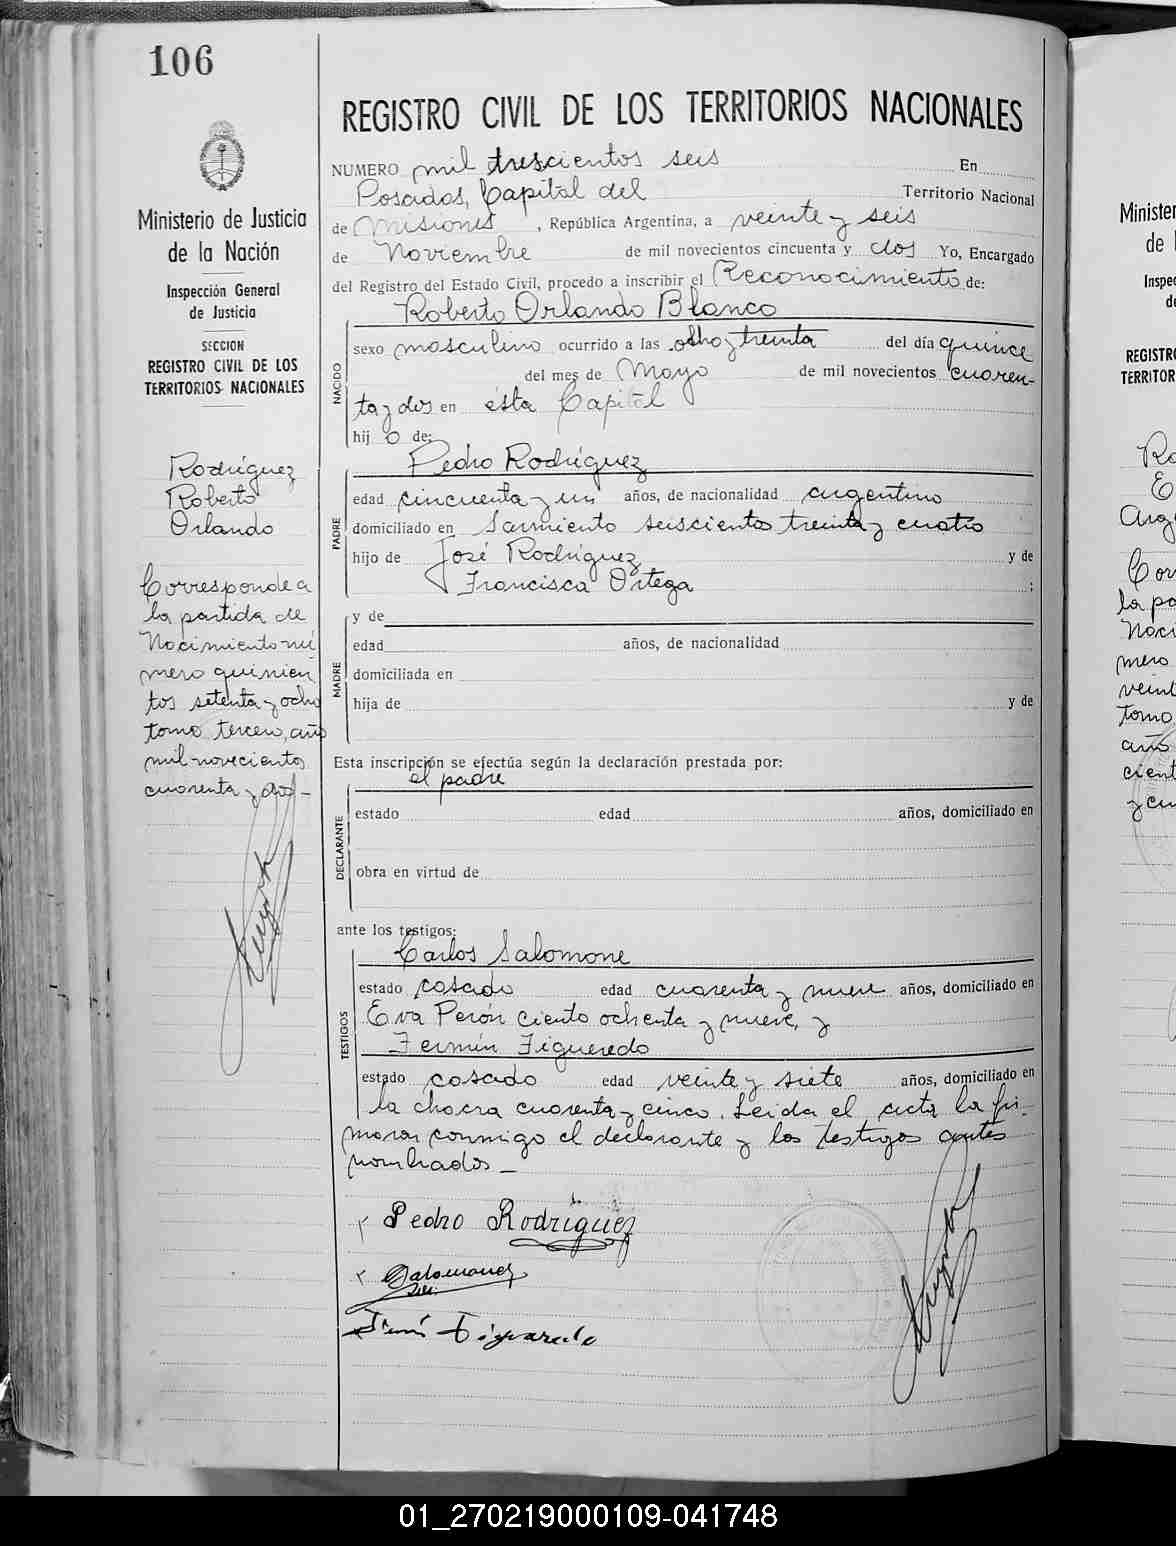 106
Ministerio de Justicia
de la Nación
Inspección General
de Justicia
SECCION
REGISTRO CIVIL DE LOS
TERRITORIOS NACIONALES
Rodríguez
Roberto
Orlando
Corresponde a
la partida de
Nacimiento nú
mero quinien
tos setenta y ocho
tomo tercero, año
mil novecientos
cuarenta y dos -
REGISTRO CIVIL DE LOS TERRITORIOS NACIONALES
NUMERO mil trescientos seis En
Posadas, Capital del Territorio Nacional
de Misiones, República Argentina, a veinte y seis
de Noviembre de mil novecientos cincuenta y dos Yo, Encargado
del Registro del Estado Civil, procedo a inscribir el Reconocimiento de:
Roberto Orlando Blanco
NACIDO
sexo masculino ocurrido a las ocho y treinta del día quince
del mes de Mayo de mil novecientos cuaren-
ta y dos en ésta Capital
hij o de:
Pedro Rodríguez
PADRE
edad cincuenta y un años, de nacionalidad argentino
domiciliado en Sarmiento seiscientos treinta y cuatro
hijo de José Rodríguez y de
Francisca Ortega ;
MADRE
y de
edad años, de nacionalidad
domiciliada en
hija de y de
Esta inscripción se efectúa según la declaración prestada por:
el padre
DECLARANTE
estado edad años, domiciliado en
obra en virtud de
ante los testigos:
Carlos Salomone
TESTIGOS
estado casado edad cuarenta y nueve años, domiciliado en
Eva Perón ciento ochenta y nueve, y
Fermín Figueredo
estado casado edad veinte y siete años, domiciliado en
la chacra cuarenta y cinco. Leida el acta la fir-
maron conmigo el declarante y los testigos antes
nombrados -
Pedro Rodríguez
Salomone
Fermín Figueredo
Minister
de l
Inspec
de
REGISTR
TERRITOR
Ro
E
Arg
Cor
la pa
Naci
mero
veint
Tomo
año
cient
y cu
01_270219000109-041748